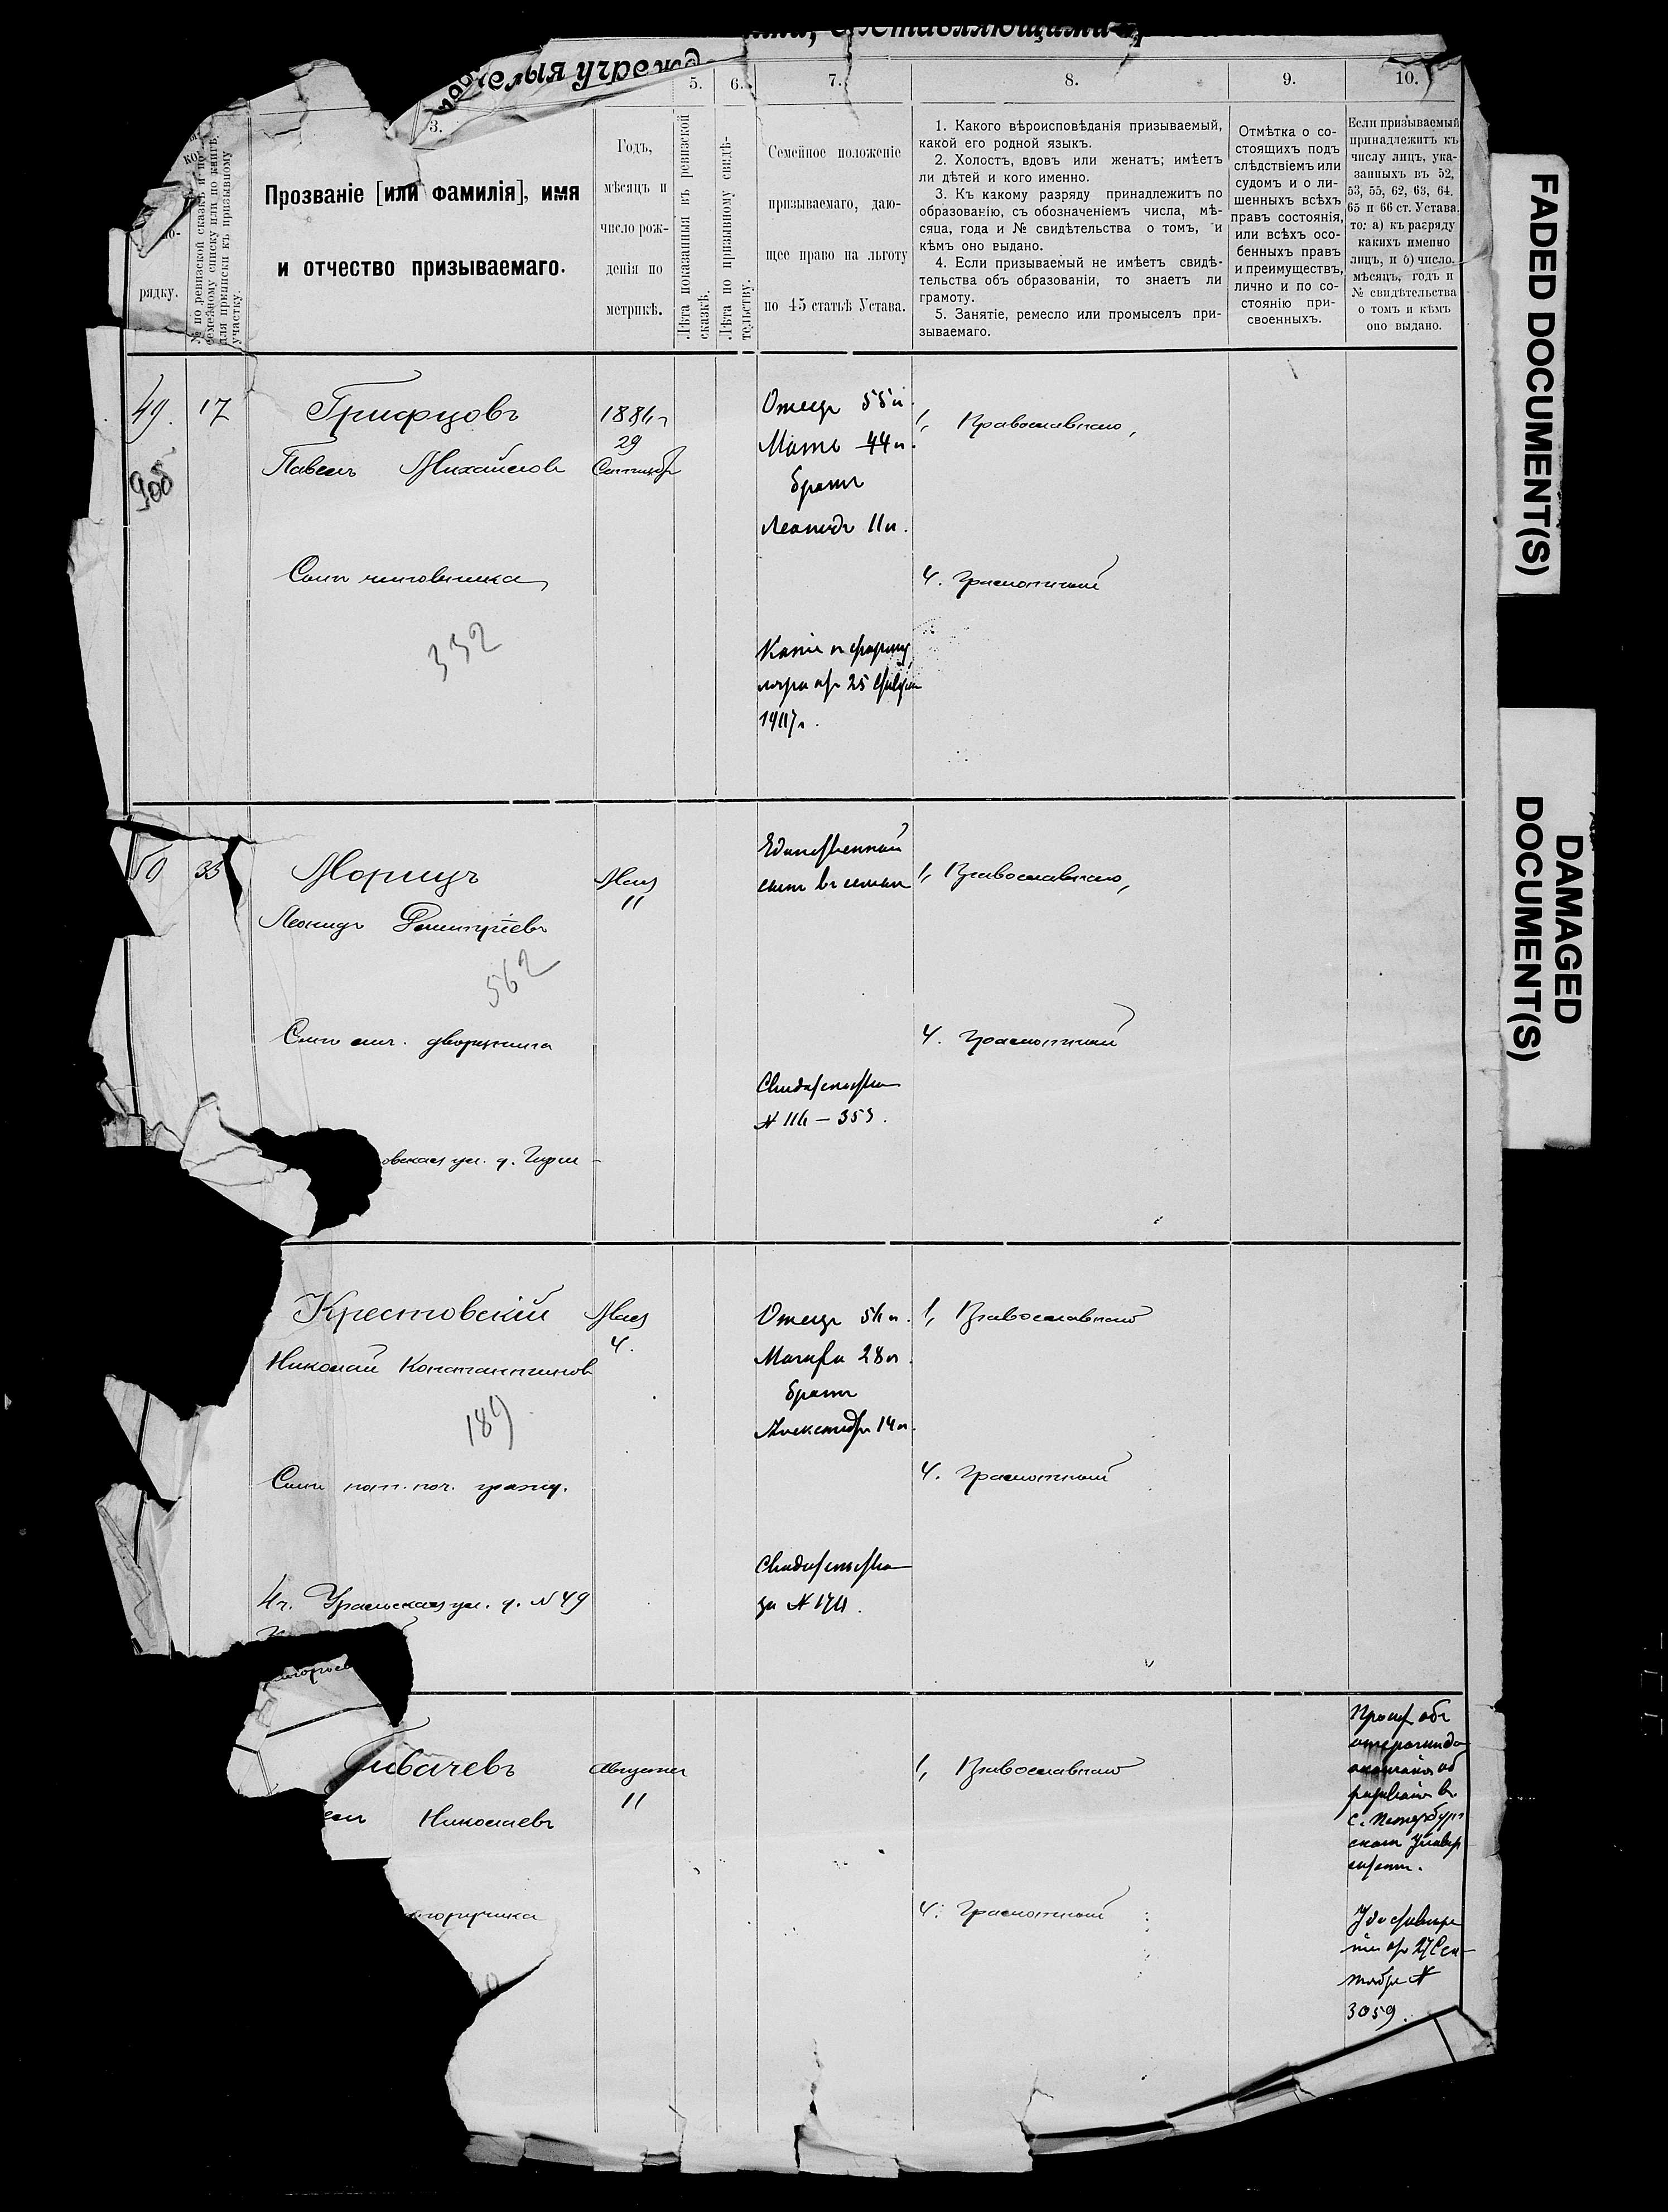 5. 6. 7. 8. 9. 10.
3.
рядку.
№ по ревизской сказкѣ и по
семейному списку или по книгѣ
для приписки къ призывному
участку.
Прозваніе [или фамилія], имя
и отчество призываемаго.
Годъ,
мѣсяцъ и
число рож-
денія по
метрикѣ.
Лѣта показанныя въ ревизской
сказкѣ.
Лѣта по призывному свидѣ-
тельству.
Семейное положеніе
призываемаго, даю-
щее право на льготу
по 45 статьѣ Устава.
1. Какого вѣроисповѣданія призываемый,
какой его родной языкъ.
2. Холостъ, вдовъ или женатъ; имѣетъ
ли дѣтей и кого именно.
3. Къ какому разряду принадлежитъ по
образованію, съ обозначеніемъ числа, мѣ-
сяца, года и № свидѣтельства о томъ, и
кѣмъ оно выдано.
4. Если призываемый не имѣетъ свидѣ-
тельства объ образованіи, то знаетъ ли
грамоту.
5. Занятіе, ремесло или промыселъ при-
зываемаго.
Отмѣтка о со-
стоящихъ подъ
слѣдствіемъ или
судомъ и о ли-
шенныхъ всѣхъ
правъ состоянія,
или всѣхъ осо-
бенныхъ правъ
и преимуществъ,
лично и по со-
стоянію при-
своенныхъ.
Если призываемый
принадлежитъ къ
числу лицъ, ука-
занныхъ въ 52,
53, 55, 62, 63, 64.
65 и 66 ст. Устава,
то: а) къ разряду
какихъ именно
лицъ, и б) число.
мѣсяцъ, годъ и
№ свидѣтельства
о томъ и кѣмъ
оно выдано.
49. 17
Грифцовъ
Павелъ Михайловъ
Сынъ чиновника
332
29
Отецъ 55 л.
Мать 44 л.
братъ
Леонидъ 11 л.
1, Православнаго,
4. Грамотный
50 35
Морицъ
Леонидъ Дмитріевъ
562
Сынъ лич. дворянина
овская ул. д.
Мая
11
Единственный
сынъ въ семьѣ
Свидѣтельство
1, Православнаго,
4. Грамотный
Крестовскій
Николай Константиновъ
189
Сынъ пот. поч. гражд.
4ч. Уральская ул. д. №49
Мая
4.
Отецъ
Мачеха 28 л.
братъ
Александръ 14 л.
Свидѣтельство
за №
1, Православнаго
4. Грамотный
ивачевъ
Николаевъ
поручика
Августа
11
1, Православнаго
4. Грамотный
С. Петербург
скомъ Универ
ситетѣ.
27 Сен
тября №
3059.
FADED DOCUMENT(S)
DAMAGED
DOCUMENT(S)